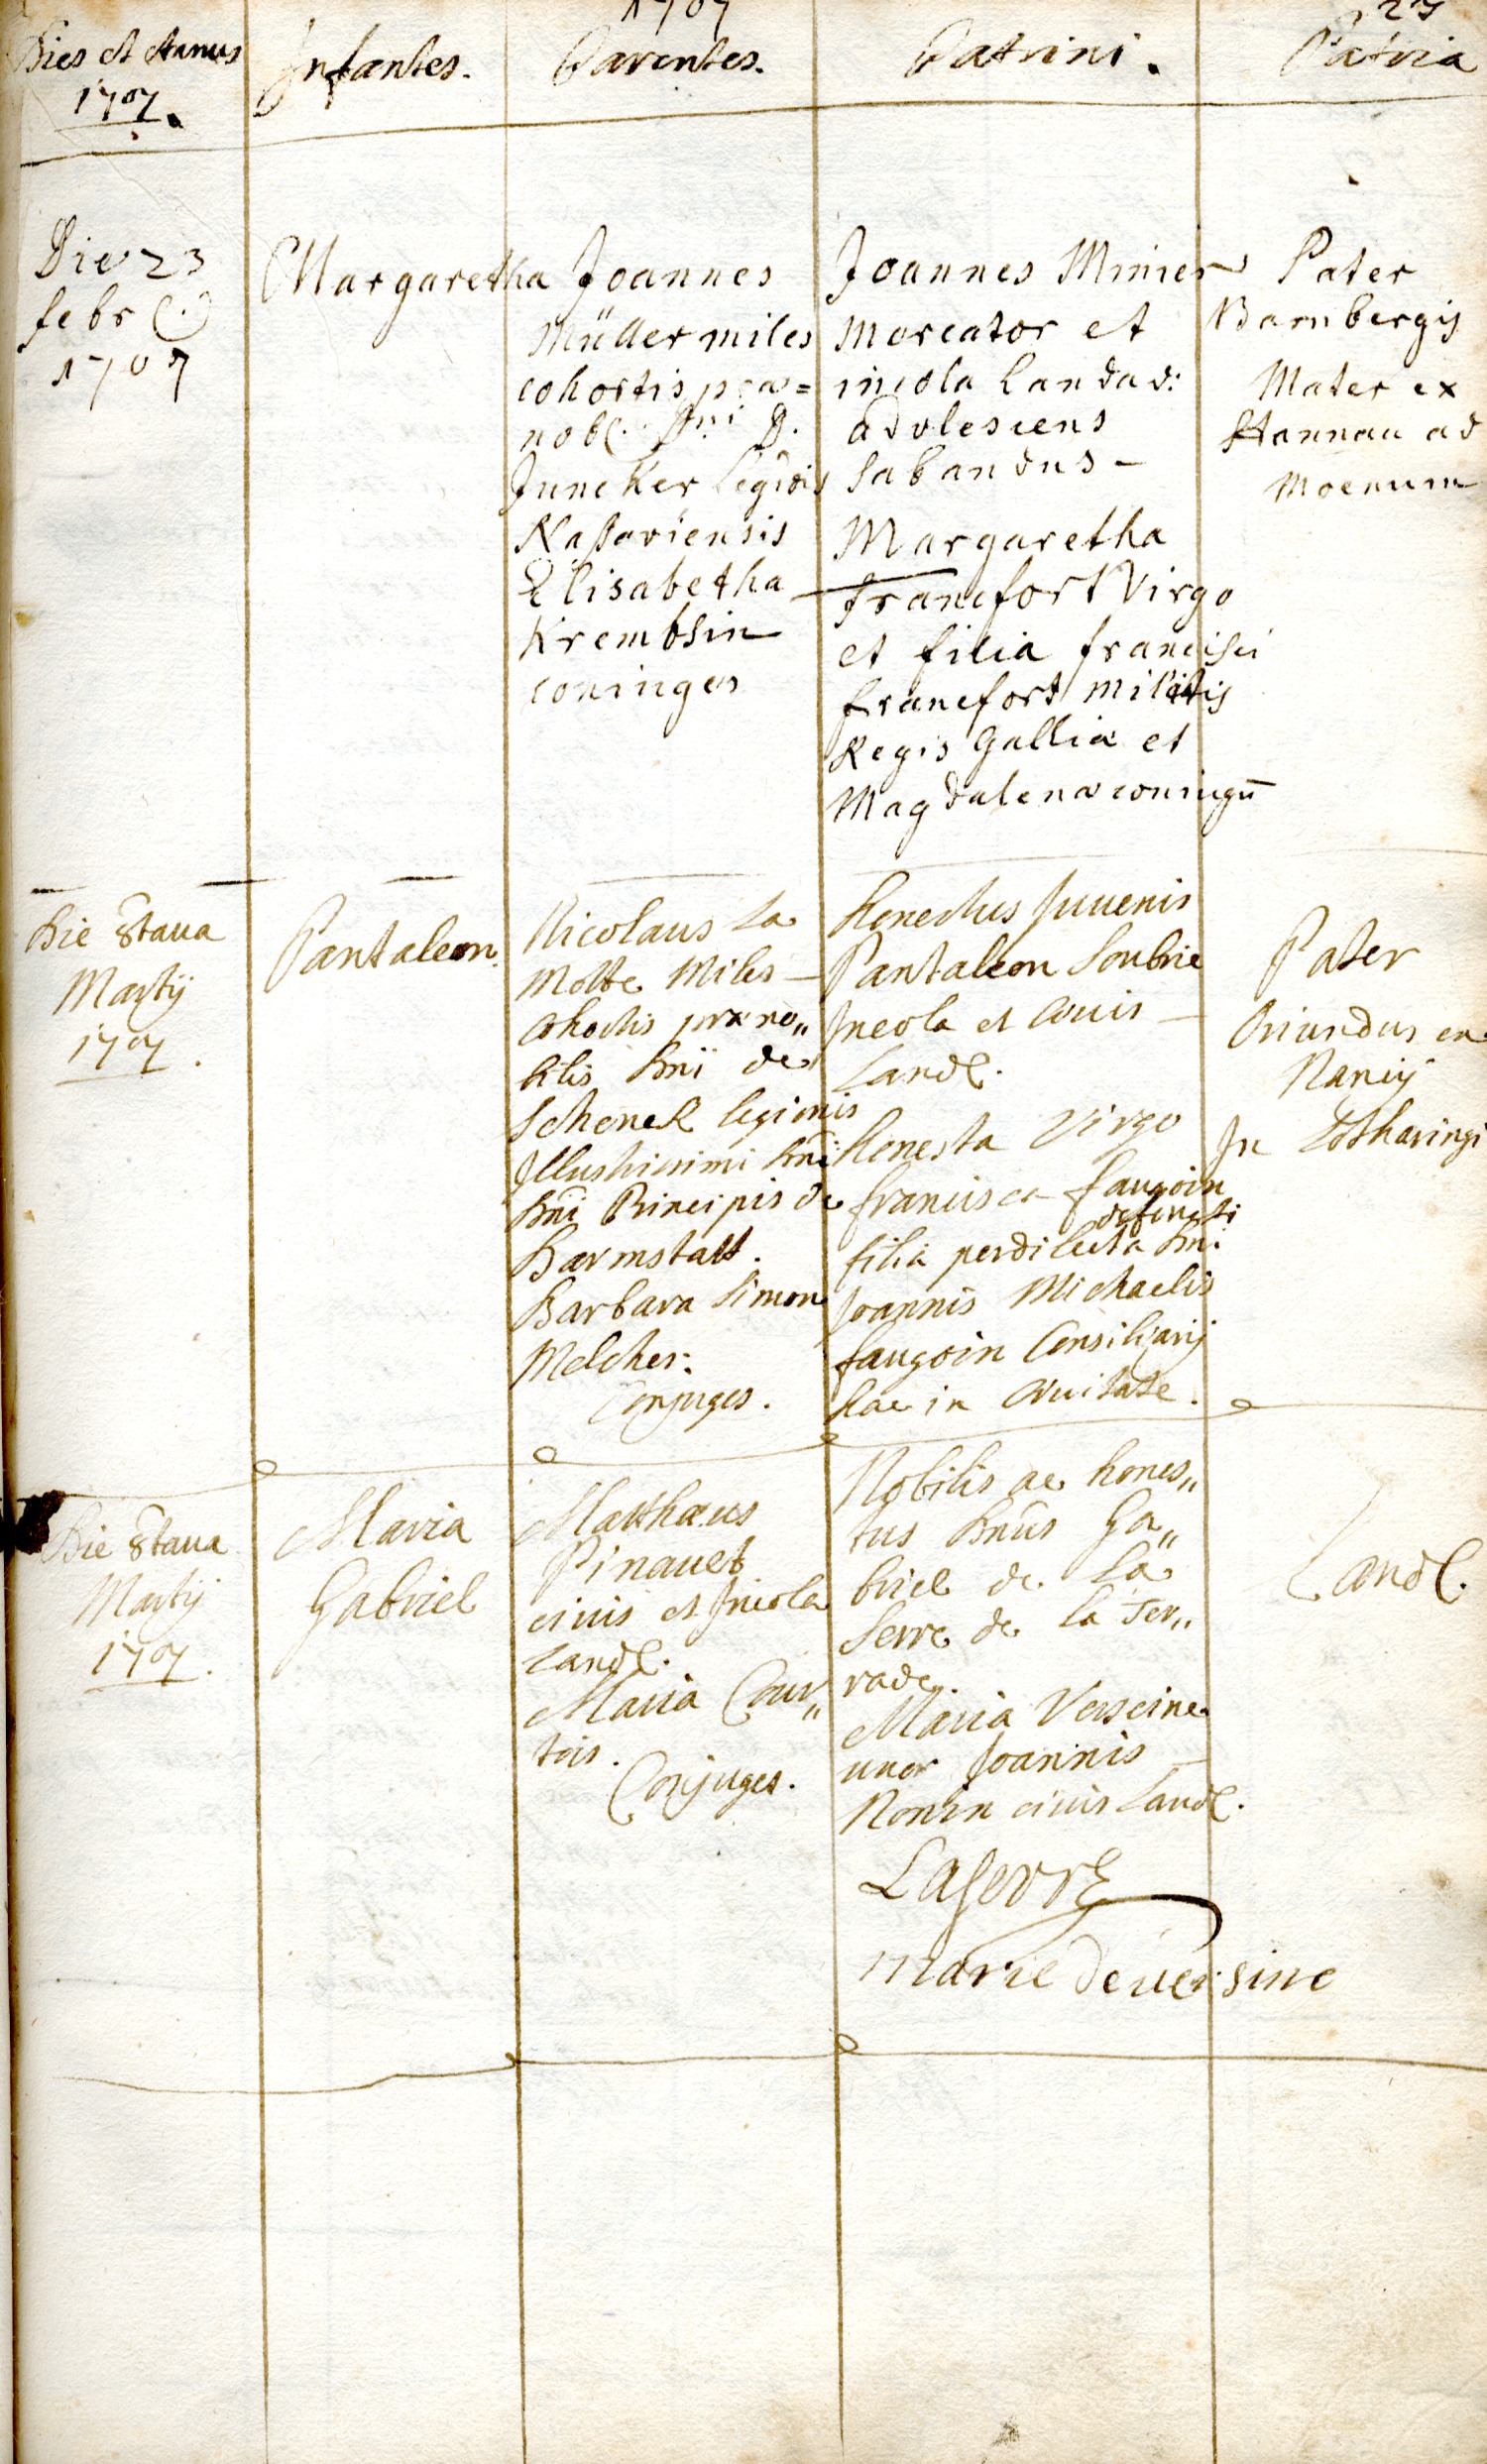 1707
27
Dies et Annus
1707.
Infantes.
Parentes.
Patrini.
Patria
Die 23
febr (.)
1707
Margaretha
Joannes
Müller miles
cohortis præ=
nobl. Dni D.
Juncker Legiois
Naßoviensis
Elisabetha
Krembsin
coniuges
Joannes Minier
Mercator et
incola Landav:
adolescens
Sabaudus -
Margaretha
Francfort Virgo
et filia francisci
francfort militis
Regis Galliæ et
Magdalenæ coniugū
Pater
Bambergis
Mater ex
Hannau ad
Moenum
Die 8taua
Martij
1707.
Pantaleon.
Nicolaus La
Motte Miles
Cohortis præno„
bilis Dni de
Schenck legionis
Illustrissimi Dni
Dni Principis de
Darmstatt.
Barbara Simon
Melcher.
Conjuges.
Honestus Juuenis
Pantaleon Soubrie
Incola et Ciuis
Landl.
Honesta Virgo
francisca faugoin
defuncti
filia perdilecta Dni
Joannis Michaelis
faugoin Consiliarij
hac in Ciuitate.
Pater
Oriundus ex
Nancij
In Lotharingi
Die 8taua
Martij
1707.
Maria
Gabriel
Matthæus
Pinauet
ciuis et Incola
Landl.
Maria Cour„
tois.
Conjuges.
Nobilis ac hones„
tus Dnus Ga„
briel de La
Serre de la Ter„
rade.
Maria Verseine
uxor Joannis
Nonin ciuis Landl.
Laserre
marie deuersine
Landl.